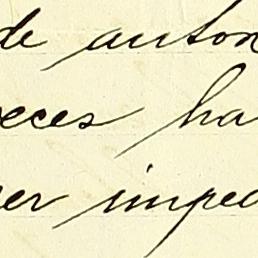 de auton
eces ha
er imped